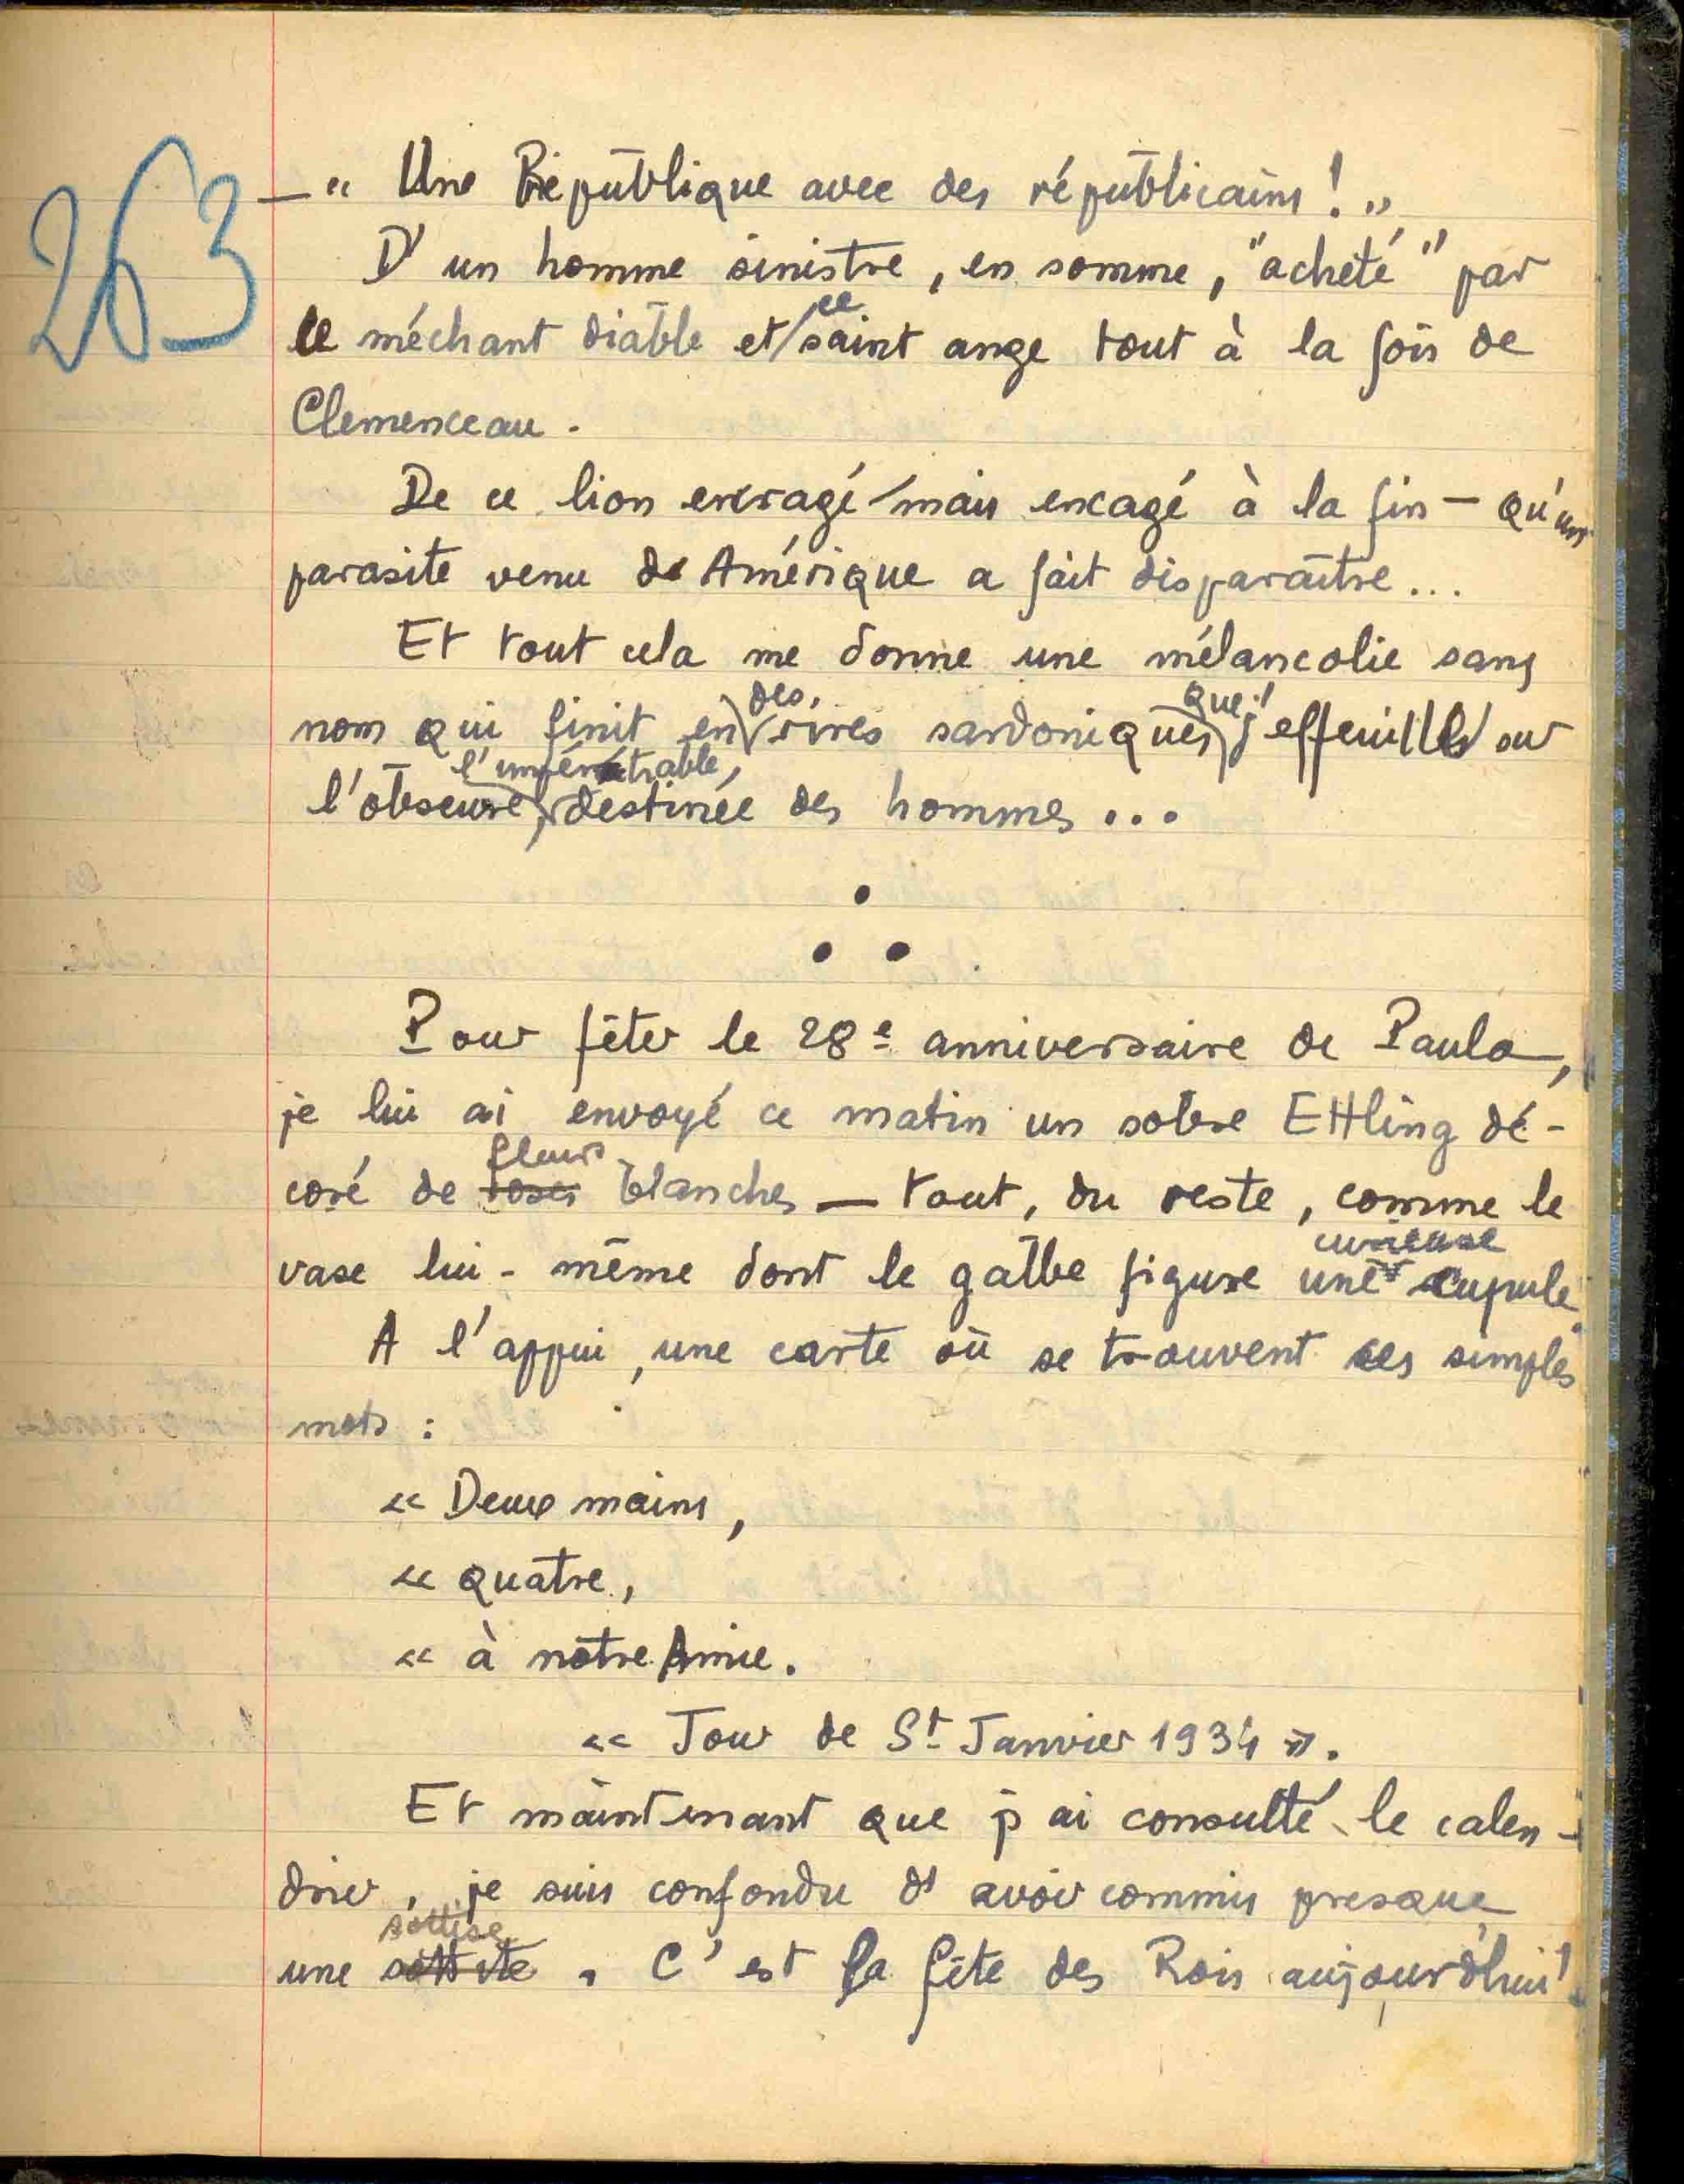 263
— « Une République avec des républicains ! »
D'un homme sinistre, en somme, "acheté" par
le méchant diable et ce saint ange tout à la fois de
Clemenceau.
De ce lion enragé mais encagé à la fin — qu'un
parasite venu de Amérique a fait disparaître...
Et tout cela me donne une mélancolie sans
nom qui finit en des rires sardoniques que j'effeuille sur
l'obscure, l'impénétrable, destinée des hommes...
Pour fêter le 28e anniversaire de Paula,
je lui ai envoyé ce matin un sobre Etling dé-
coré de roses fleurs blanches — tout, du reste, comme le
vase lui-même dont le galbe figure une curieuse cupule.
A l'appui, une carte où se trouvent ces simples
mots :
« Deux mains,
« quatre,
« à notre Amie.
« Jour de St Janvier 1934 ».
Et maintenant que j'ai consulté le calen-
drier, je suis confondu d'avoir commis presque
une sottise. C'est la fête des Rois aujourd'hui !